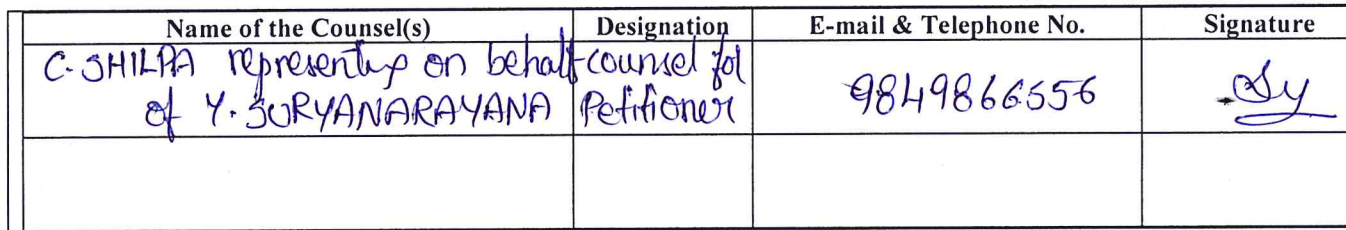 Name of the Counsel(s) Designation E-mail & Telephone No. Signature
C. SHILPA representing on behalf counsel for 
of Y. SURYANARAYANA Petitioner 9849866556